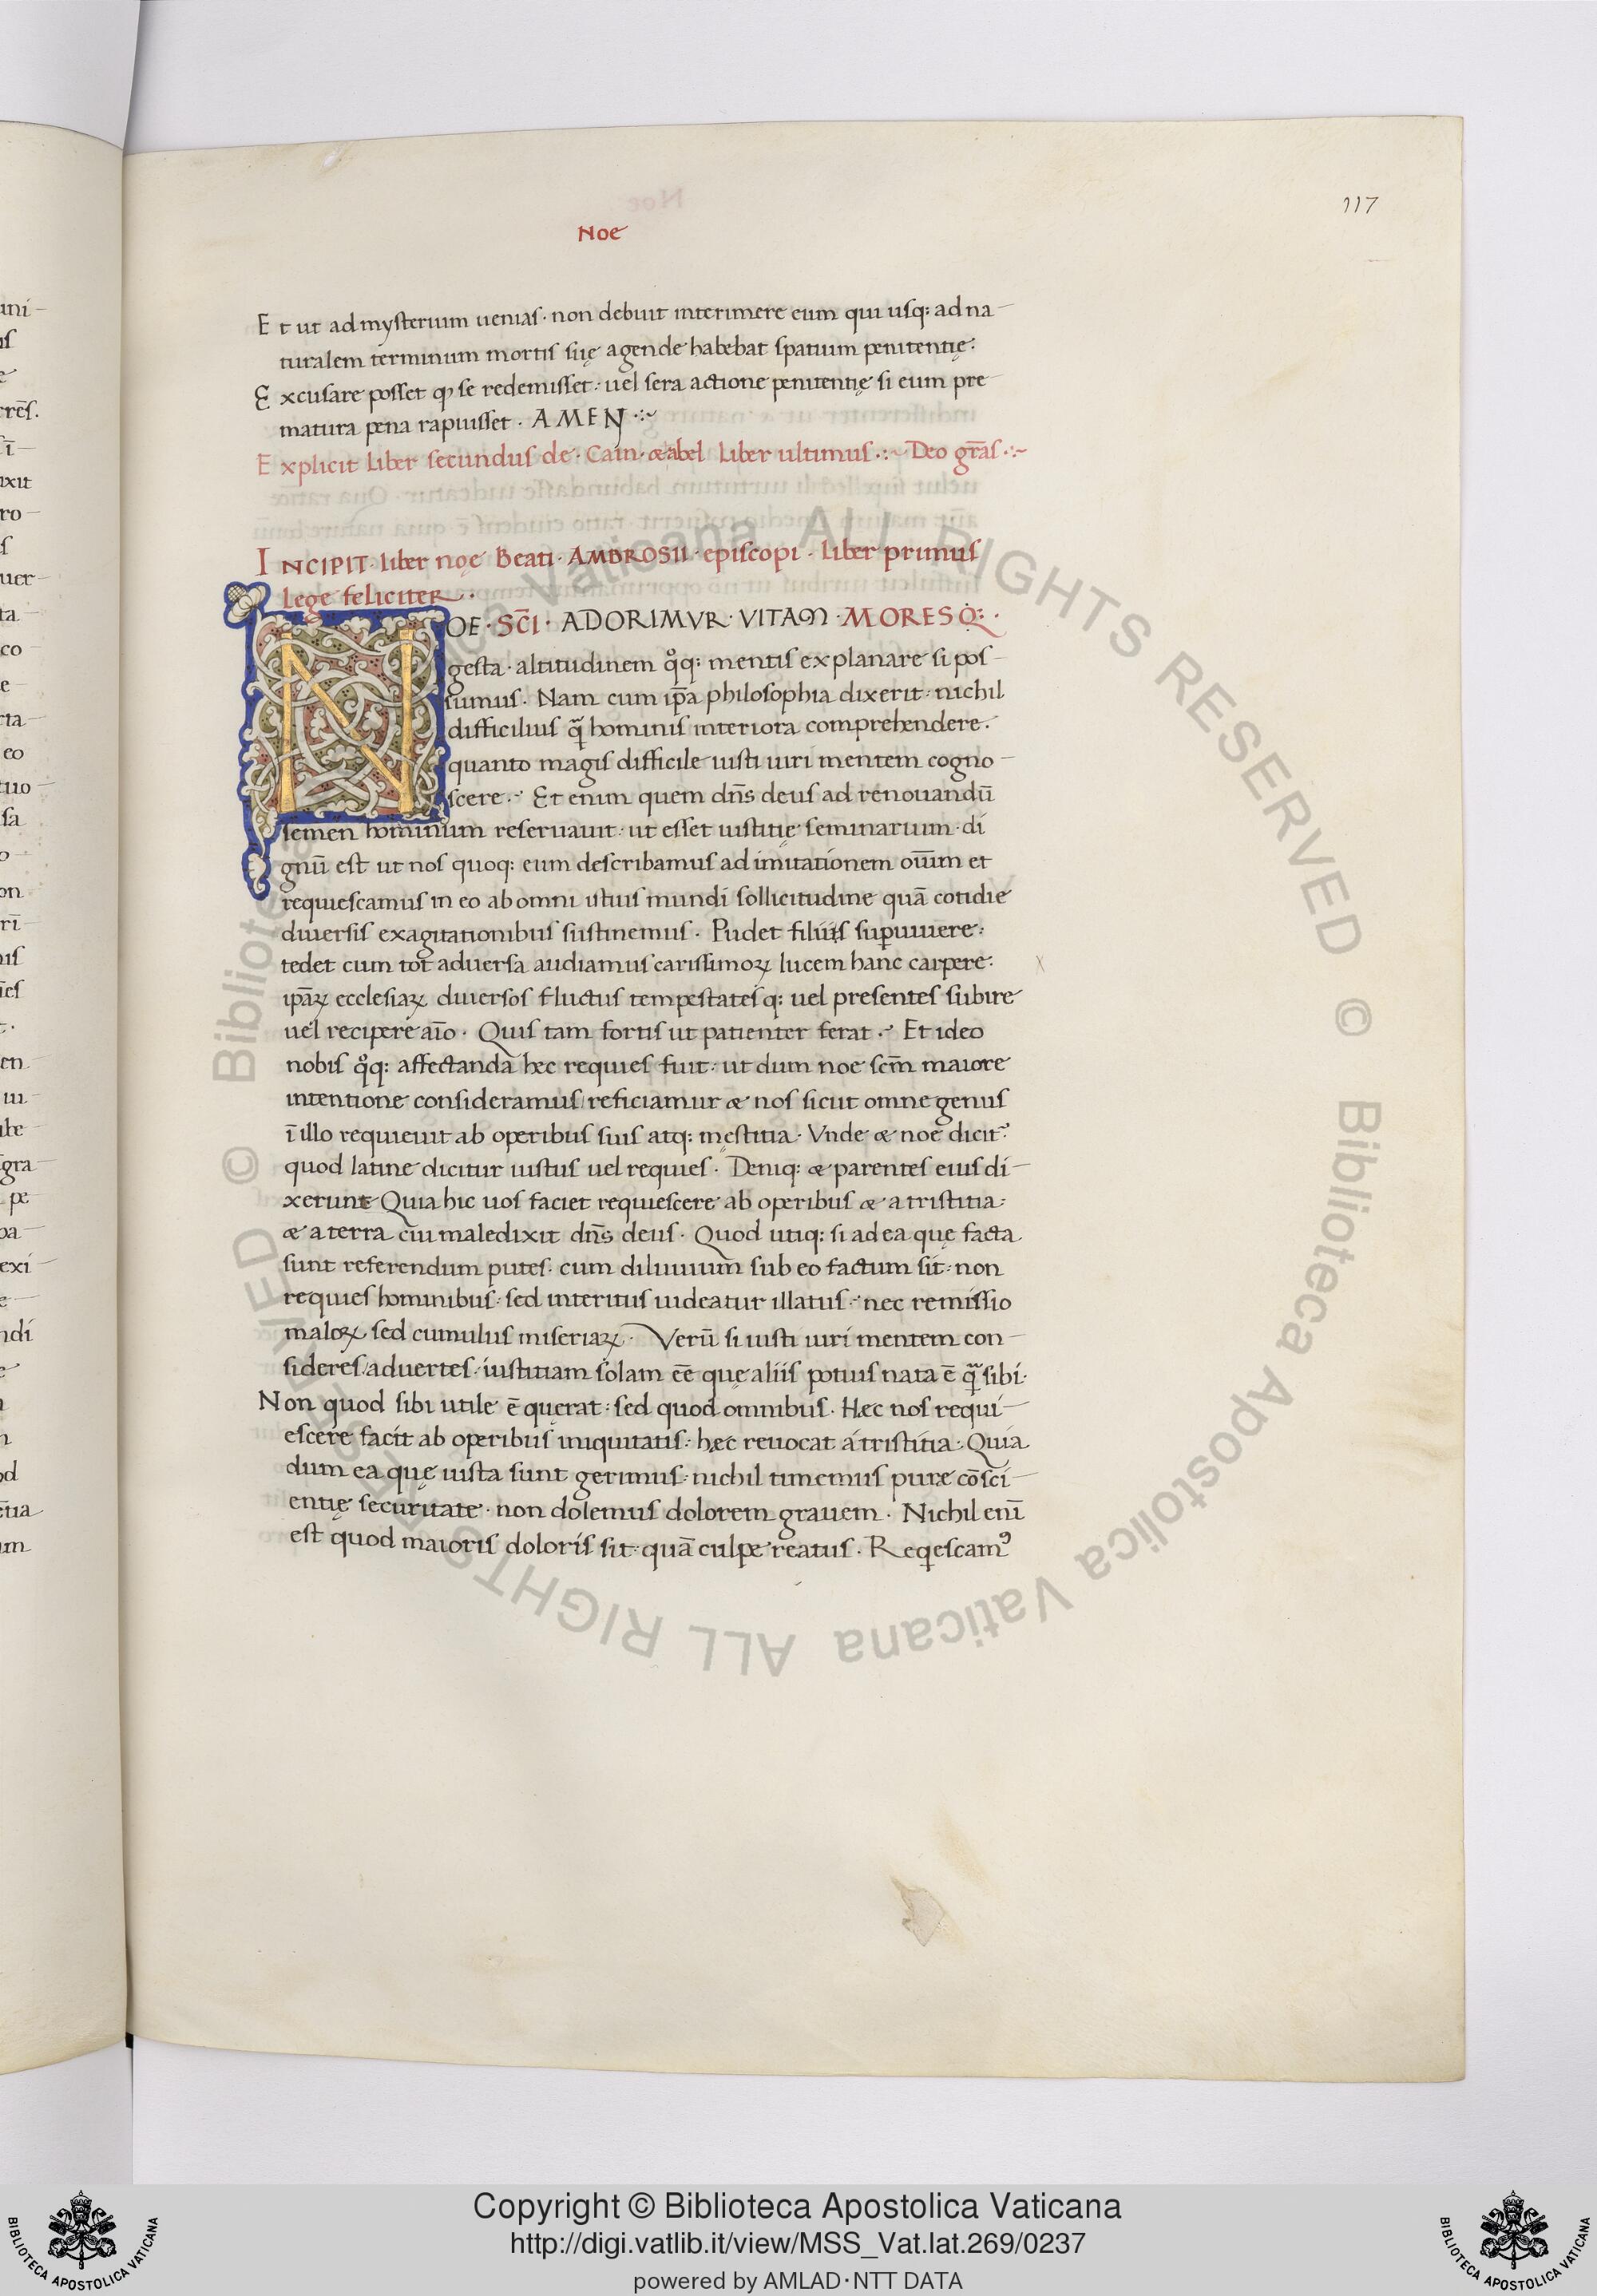 117
Noe
Et ut ad mysterium uenias· non debuit interimere eum qui usq: ad na-
turalem terminum mortis suę agende habebat spatium penitentię:
Excusare posset qȝ se redemisset: uel sera actione penitentię si eum pre
matura pena rapuisset · AMEN
Explicit Liber secundus de· Cain· æ abel Liber ultimus·:~ Deo grās·:~
INCIPIT· Liber noę Beati· AMBROSII· episcopi· Liber primus
Lege feliciter·
NOE· SC̄I· ADORIMVR· VITAM· MORESQ:·
gesta· altitudinem qͦq: mentis explanare si pos-
sumus· Nam cum ip̄a philosophia dixerit· nichil
difficilius q̃ hominis interiora comprehendere·
quanto magis difficile iusti uiri mentem cogno-
scere· Et enim quem dn̄s deus ad renouandū
semen hominum reseruauit· ut esset iustitię seminarium· di
gnū est ut nos quoq: eum describamus ad imitationem oīum et
requiescamus in eo ab omni istius mundi sollicitudine quā cotidie
diuersis exagitationibus sustinemus· Pudet filiis sup̱uiuere:
tedet cum tot aduersa audiamus carissimoꝝ lucem hanc carpere:
ip̄aꝝ ecclesiaꝝ diuersos fluctus tempestatesq: uel presentes subire
uel recipere aīo· Quis tam fortis ut patienter ferat· Et ideo
nobis qͦq: affectanda hec requies fuit· ut dum noe scm̄ maiore
intentione consideramus/ reficiamur æ nos sicut omne genus
ī illo requieuit ab operibus suis atq: męstitia· Vnde æ noe dicit᷒
quod latine dicitur iustus uel requies· Deniq: æ parentes eius di-
xerunt Quia hic uos faciet requiescere ab operibus æ a tristitia:
æ a terra cui maledixit dn̄s deus· Quod utiq: si ad ea quę facta
sunt referendum putes· cum diluuium sub eo factum sit· non
requies hominibus· sed interitus uideatur illatus· nec remissio
maloꝝ sed cumulus miseriaꝝ· Verū si iusti uiri mentem con-
sideres/ aduertes· iustitiam solam eē quę aliis potius nata ē q̃ sibi·
Non quod sibi utile ē quęrat· sed quod omnibus· Hæc nos requi-
escere facit ab operibus iniquitatis· hęc reuocat a tristitia· Quia
dum ea quę iusta sunt gerimus· nichil timemus puræ cōsci-
entię securitate· non dolemus dolorem grauem· Nichil enī
est quod maioris doloris sit· quā culpe reatus· Reqescamꝰ
Copyright © Biblioteca Apostolica Vaticana
http://digi.vatlib.it/view/MSS_Vat.lat.269/0237
powered by AMLAD·NTT DATA
BIBLIOTECA APOSTOLICA VATICANA
BIBLIOTECA APOSTOLICA VATICANA
© Biblioteca Apostolica Vaticana ALL RIGHTS RESERVED
© Biblioteca Apostolica Vaticana ALL RIGHTS RESERVED